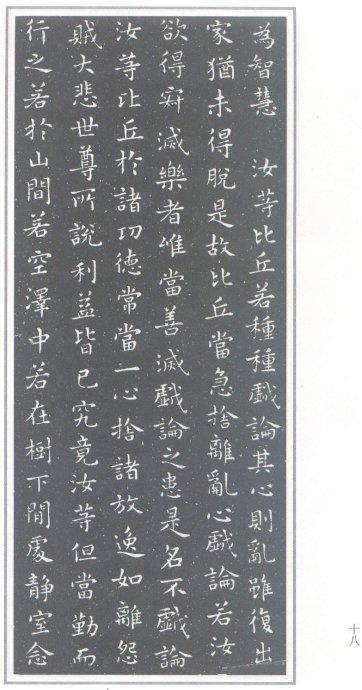 為智慧　汝等比丘若種種戲論其心則亂雖復出
家猶未得脫是故比丘當急捨離亂心戲論若汝
欲得寂滅樂者唯當善滅戲論之患是名不戲論
汝等比丘於諸功德常當一心捨諸放逸如離怨
賊大悲世尊所說利益皆已究竟汝等但當勤而
行之若於山間若空澤中若在樹下閒處靜室念
十八